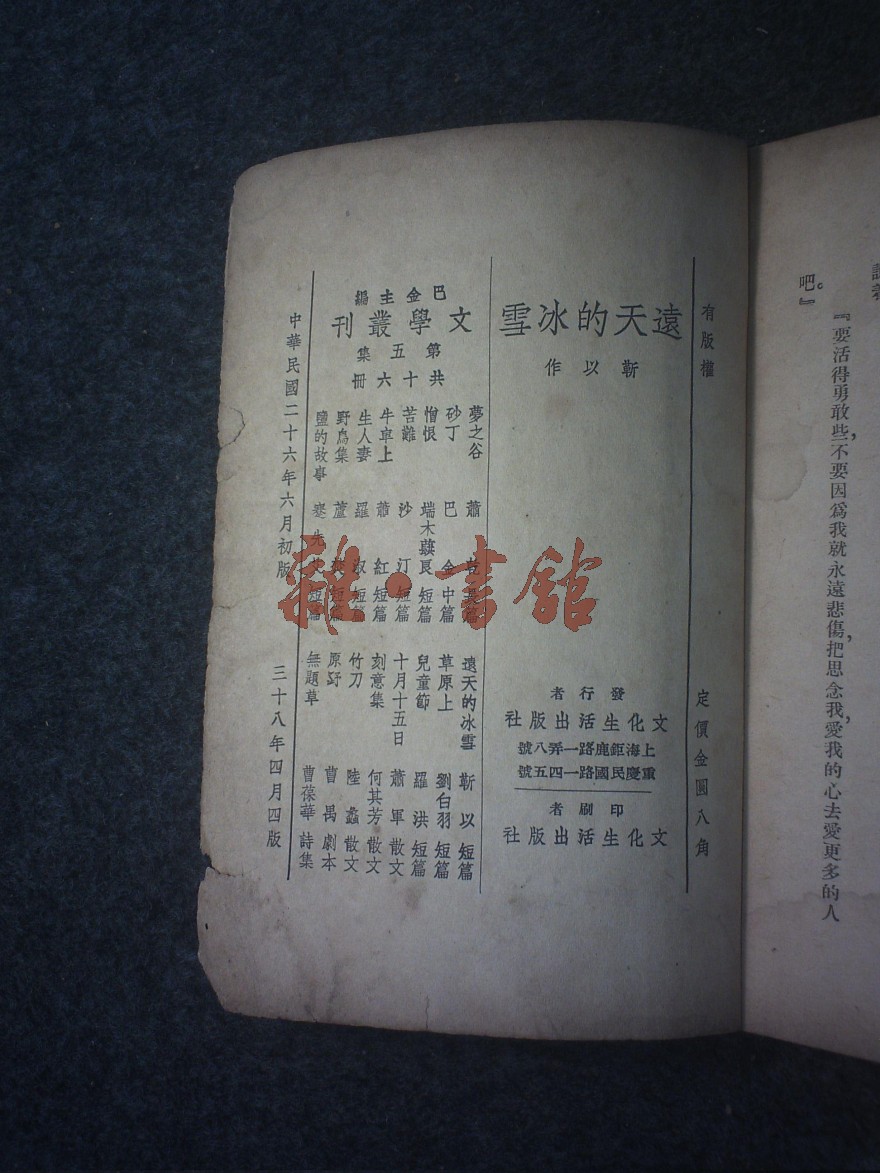 『要活得勇敢些，不要因爲我就永遠悲傷，把思念我，愛我的心去愛更多的人
吧。』
有版權
定價金圓八角
遠天的冰雪
靳以作
發行者
文化生活出版社
上海鉅鹿路一弄八號
重慶民國路一四五號
印刷者
文化生活出版社
巴金主編
文學叢刊
第五集
共十六冊
夢之谷 蕭乾 長篇
砂丁 巴金 中篇
憎恨 端木蕻良 短篇
苦難 沙汀 短篇
牛車上 蕭紅 短篇
生人妻 羅淑 短篇
野鳥集 蘆焚 短篇
鹽的故事 蹇先艾 短篇
遠天的冰雪 靳以 短篇
草原上 劉白羽 短篇
兒童節 羅洪 短篇
十月十五日 蕭軍 散文
刻意集 何其芳 散文
竹刀 陸蠡 散文
原野 曹禺 劇本
無題草 曹葆華 詩集
中華民國二十六年六月初版
三十八年四月四版
雜·書館